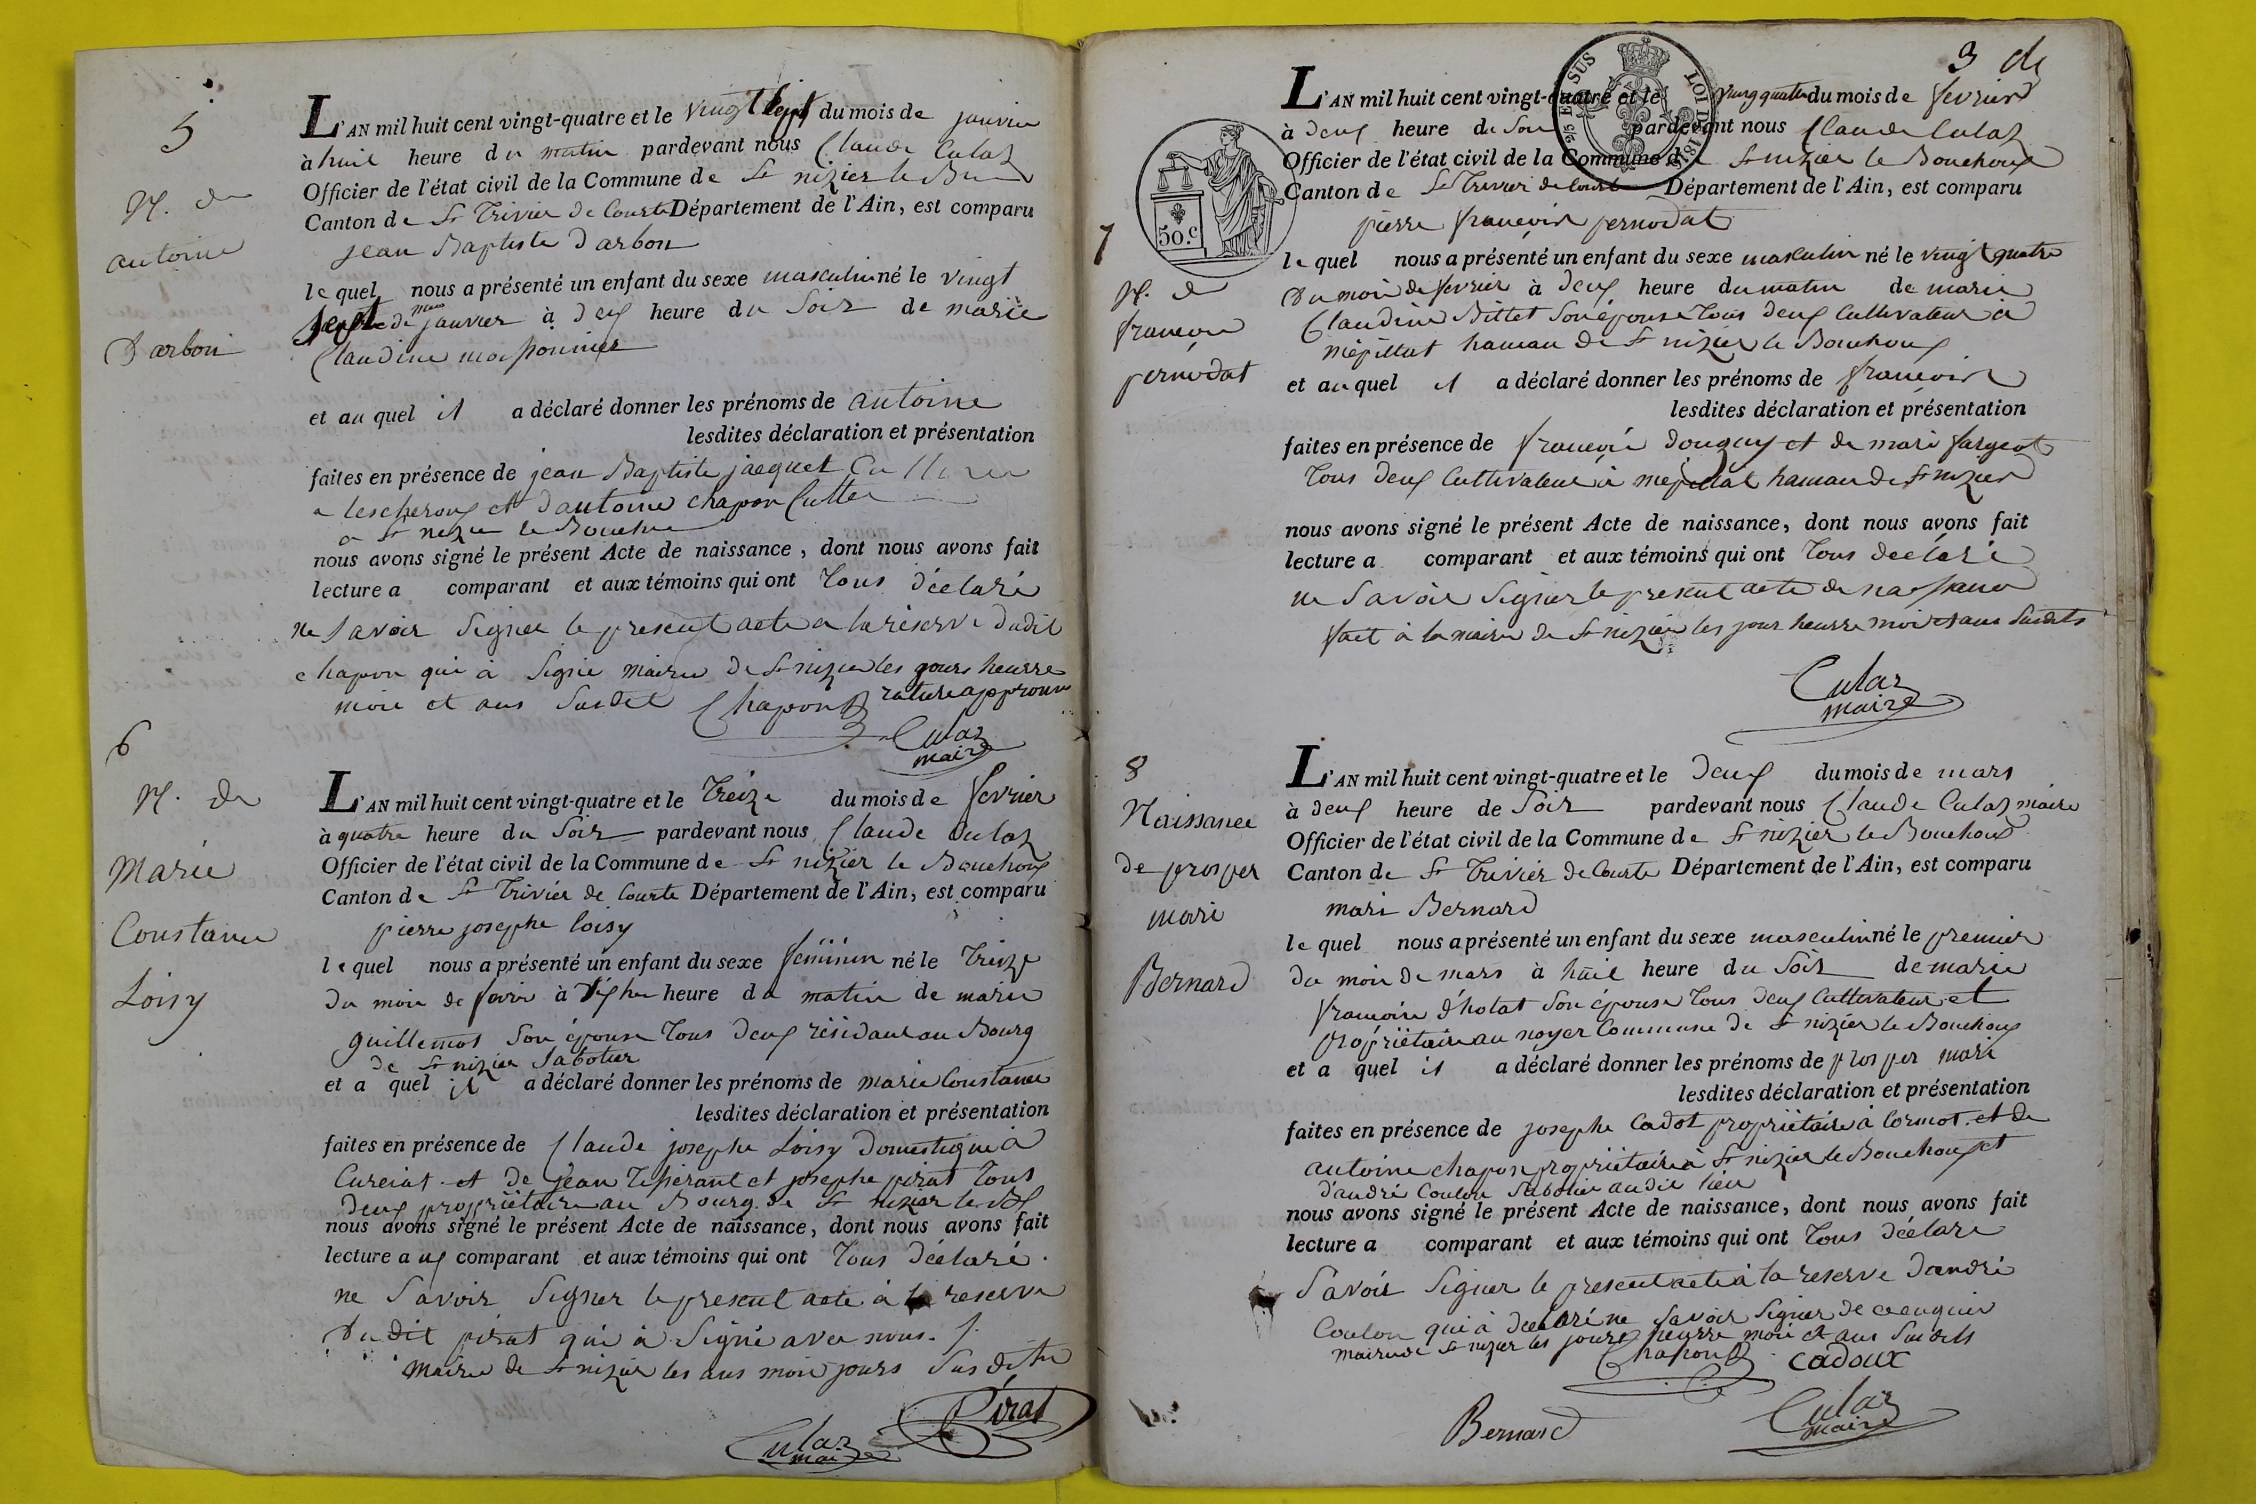 5
N. de
antoine
Darbon
L'AN mil huit cent vingt-quatre et le vingt sept du mois de janvier
à huit heure du matin pardevant nous Claude Culaz
Officier de l'état civil de la Commune de St nizier le Bou
Canton de St Trivier de Courte Département de l'Ain, est comparu
jean Baptiste Darbon
lequel nous a présenté un enfant du sexe masculin né le vingt
sept de mois janvier à deux heure du Soir de marie
Claudine
et au quel il a déclaré donner les prénoms de antoine
lesdites déclaration et présentation
faites en présence de jean Baptiste jacquet
a lescheroux et d'antoine chapon Culte
a St nizier le Bouchou
nous avons signé le présent Acte de naissance, dont nous avons fait
lecture a comparant et aux témoins qui ont Tous déclaré
ne Savoir Signer le present acte a la réserve dudit
chapon qui à Signé mairie de St nizier les jours heurre
mois et ans Susdit Chapon rature approuvé
Culaz
maire
6
N. de
Marie
Constance
Loisy
L'AN mil huit cent vingt-quatre et le Treize du mois de fevrier
à quatre heure du Soir pardevant nous Claude Culaz
Officier de l'état civil de la Commune de St nizier le Bouchoux
Canton de St Trivier de Courte Département de l'Ain, est comparu
pierre josephe loisy
lequel nous a présenté un enfant du sexe féminin né le Treize
du mois de fevrir à heure du matin de marie
guillemot Son épouse Tous deux résidant au Bourg
de St nizier Sabotier
et a quel il a déclaré donner les prénoms de marie Constance
lesdites déclaration et présentation
faites en présence de Claude josephe Loisy Domestique à
Curciat et de jean et josephe pirat Tous
deux propriétaire au Bourg de St nizier le
nous avons signé le présent Acte de naissance, dont nous avons fait
lecture a comparant et aux témoins qui ont Tous déclaré
ne Savoir Signer le present acte à la reserve
Du dit pirat qui à Signé avec nous.
mairie de St nizier les ans mois jours Susdits
Pirat
Culaz
maire
3
7
N. de
francois
pernodat
5 EN SUS
LOI DE 1816
50.c
L'AN mil huit cent vingt-quatre et le vingt quatre du mois de fevrier
à deux heure du Soir pardevant nous Claude Culaz
Officier de l'état civil de la Commune de St nizier le Bouchoux
Canton de St Trivier de Courte Département de l'Ain, est comparu
pierre francois pernodat
lequel nous a présenté un enfant du sexe masculin né le vingt quatre
du mois de fevrier à deux heure du matin de marie
Claudine Bittet Son épouse Tous deux Cultivateur à
mépillat hameau de St nizier le Bouchoux
et au quel il a déclaré donner les prénoms de francois
lesdites déclaration et présentation
faites en présence de francois douguy et de mari fargeot
Tous deux Cultivateur à mépillat hameau de St nizier
nous avons signé le présent Acte de naissance, dont nous avons fait
lecture a comparant et aux témoins qui ont Tous déclaré
ne Savoir Signer le present acte de naissance
fait à la mairie de St nizier les jour heurre mois et ans Susdits
Culaz
maire
8
Naissance
de prosper
mari
Bernard
L'AN mil huit cent vingt-quatre et le deux du mois de mars
à deux heure de Soir pardevant nous Claude Culaz maire
Officier de l'état civil de la Commune de St nizier le Bouchoux
Canton de St Trivier de Courte Département de l'Ain, est comparu
mari Bernard
lequel nous a présenté un enfant du sexe masculin né le premier
du mois de mars à huit heure du Soir de marie
francoise d'hotat Son épouse Tous deux Cultivateur et
propriétaire au noyer Commune de St nizier le Bouchoux
et a quel il a déclaré donner les prénoms de prosper mari
lesdites déclaration et présentation
faites en présence de josephe Cadot propriétaire à Cormot et de
antoine chapon propriétaire à St nizier le Bouchoux et
d'andré Coulon Sabotier au dit lieu
nous avons signé le présent Acte de naissance, dont nous avons fait
lecture a comparant et aux témoins qui ont Tous déclaré
Savoir Signer le present acte à la reserve d'andré
Coulon qui à déclaré ne Savoir Signer de ce enquis
mairie de St nizier les jours heurre mois et ans Susdits
Chapon cadoux
Bernard
Culaz
maire